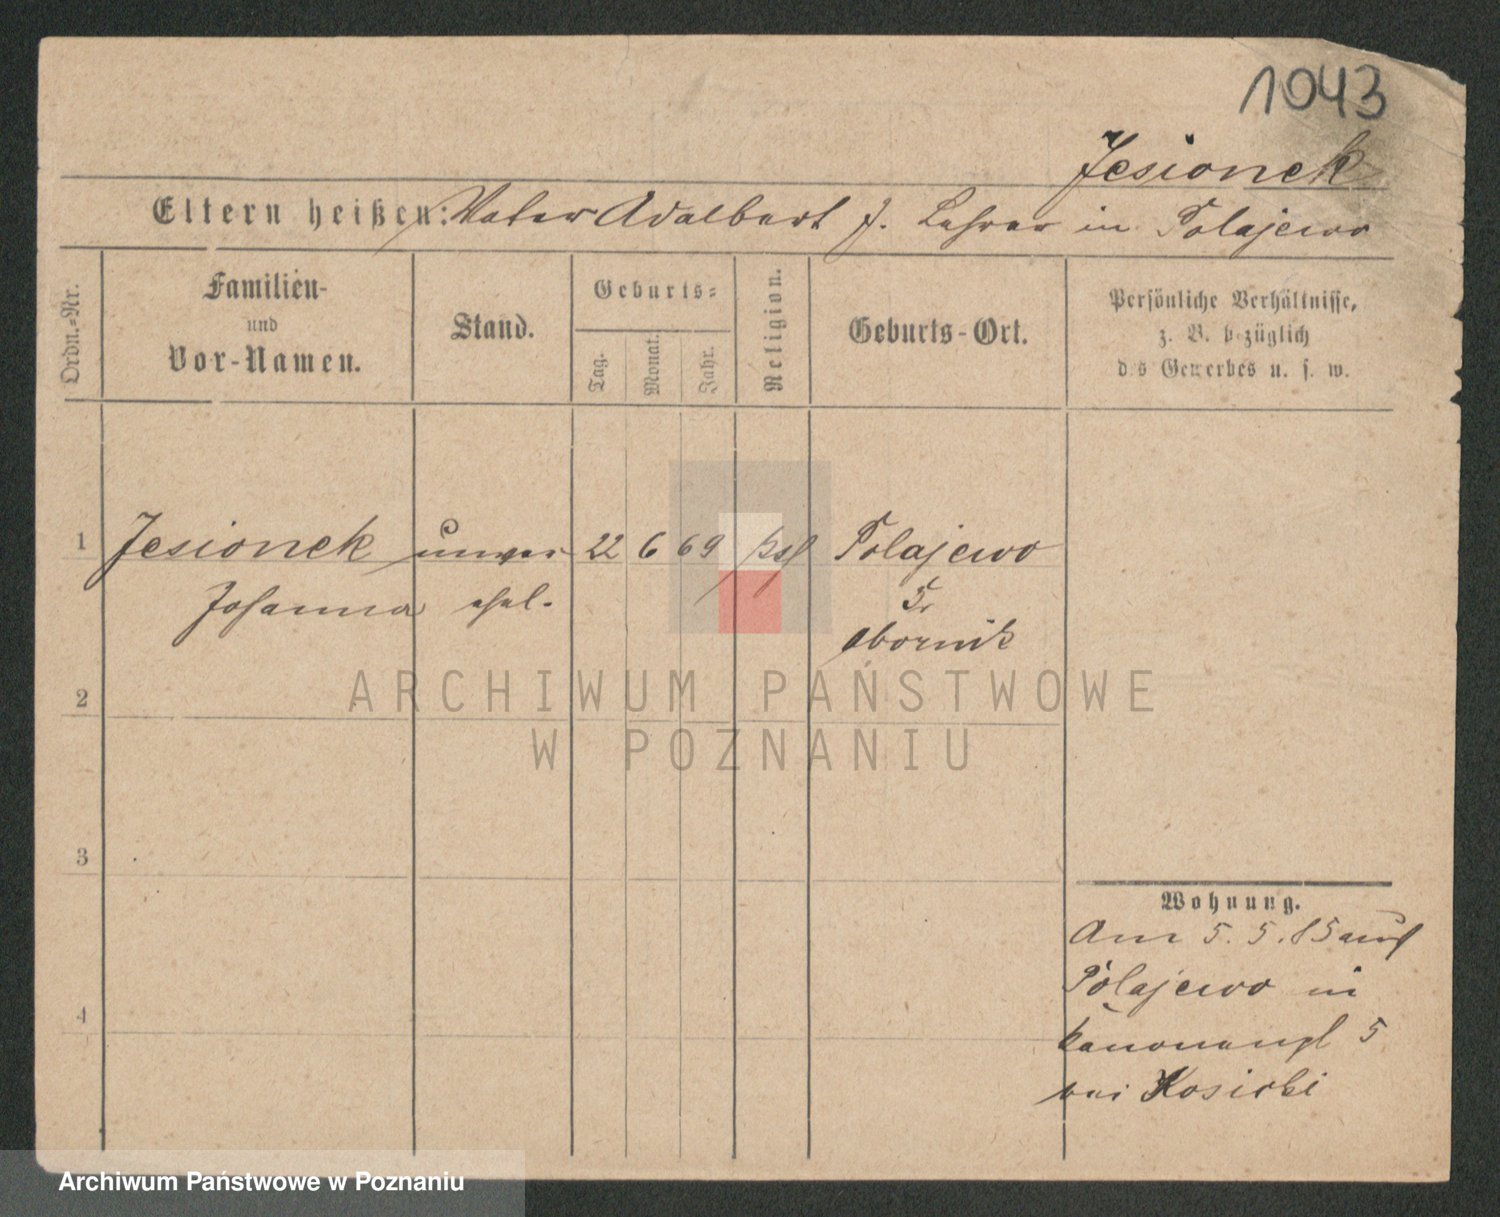 1043
Jesionek
Eltern heißen: Vater Adalbert J. Lehrer in Polajewo
Ordn.-Nr.
Familien-
und
Vor-Namen.
Stand.
Geburts-
Tag.
Monat.
Jahr.
Religion.
Geburts-Ort.
Persönliche Verhältnisse,
z. B. bezüglich
des Gewerbes u. s. w.
1 Jesionek unver 22 6 69 kath Polajewo
Johanna ehel. Kr
Obornik
2
ARCHIWUM PAŃSTWOWE
W POZNANIU
3
Wohnung.
Am 5. 5. 85 aus
Polajewo in
4
5
bei Kosicki
Archiwum Państwowe w Poznaniu